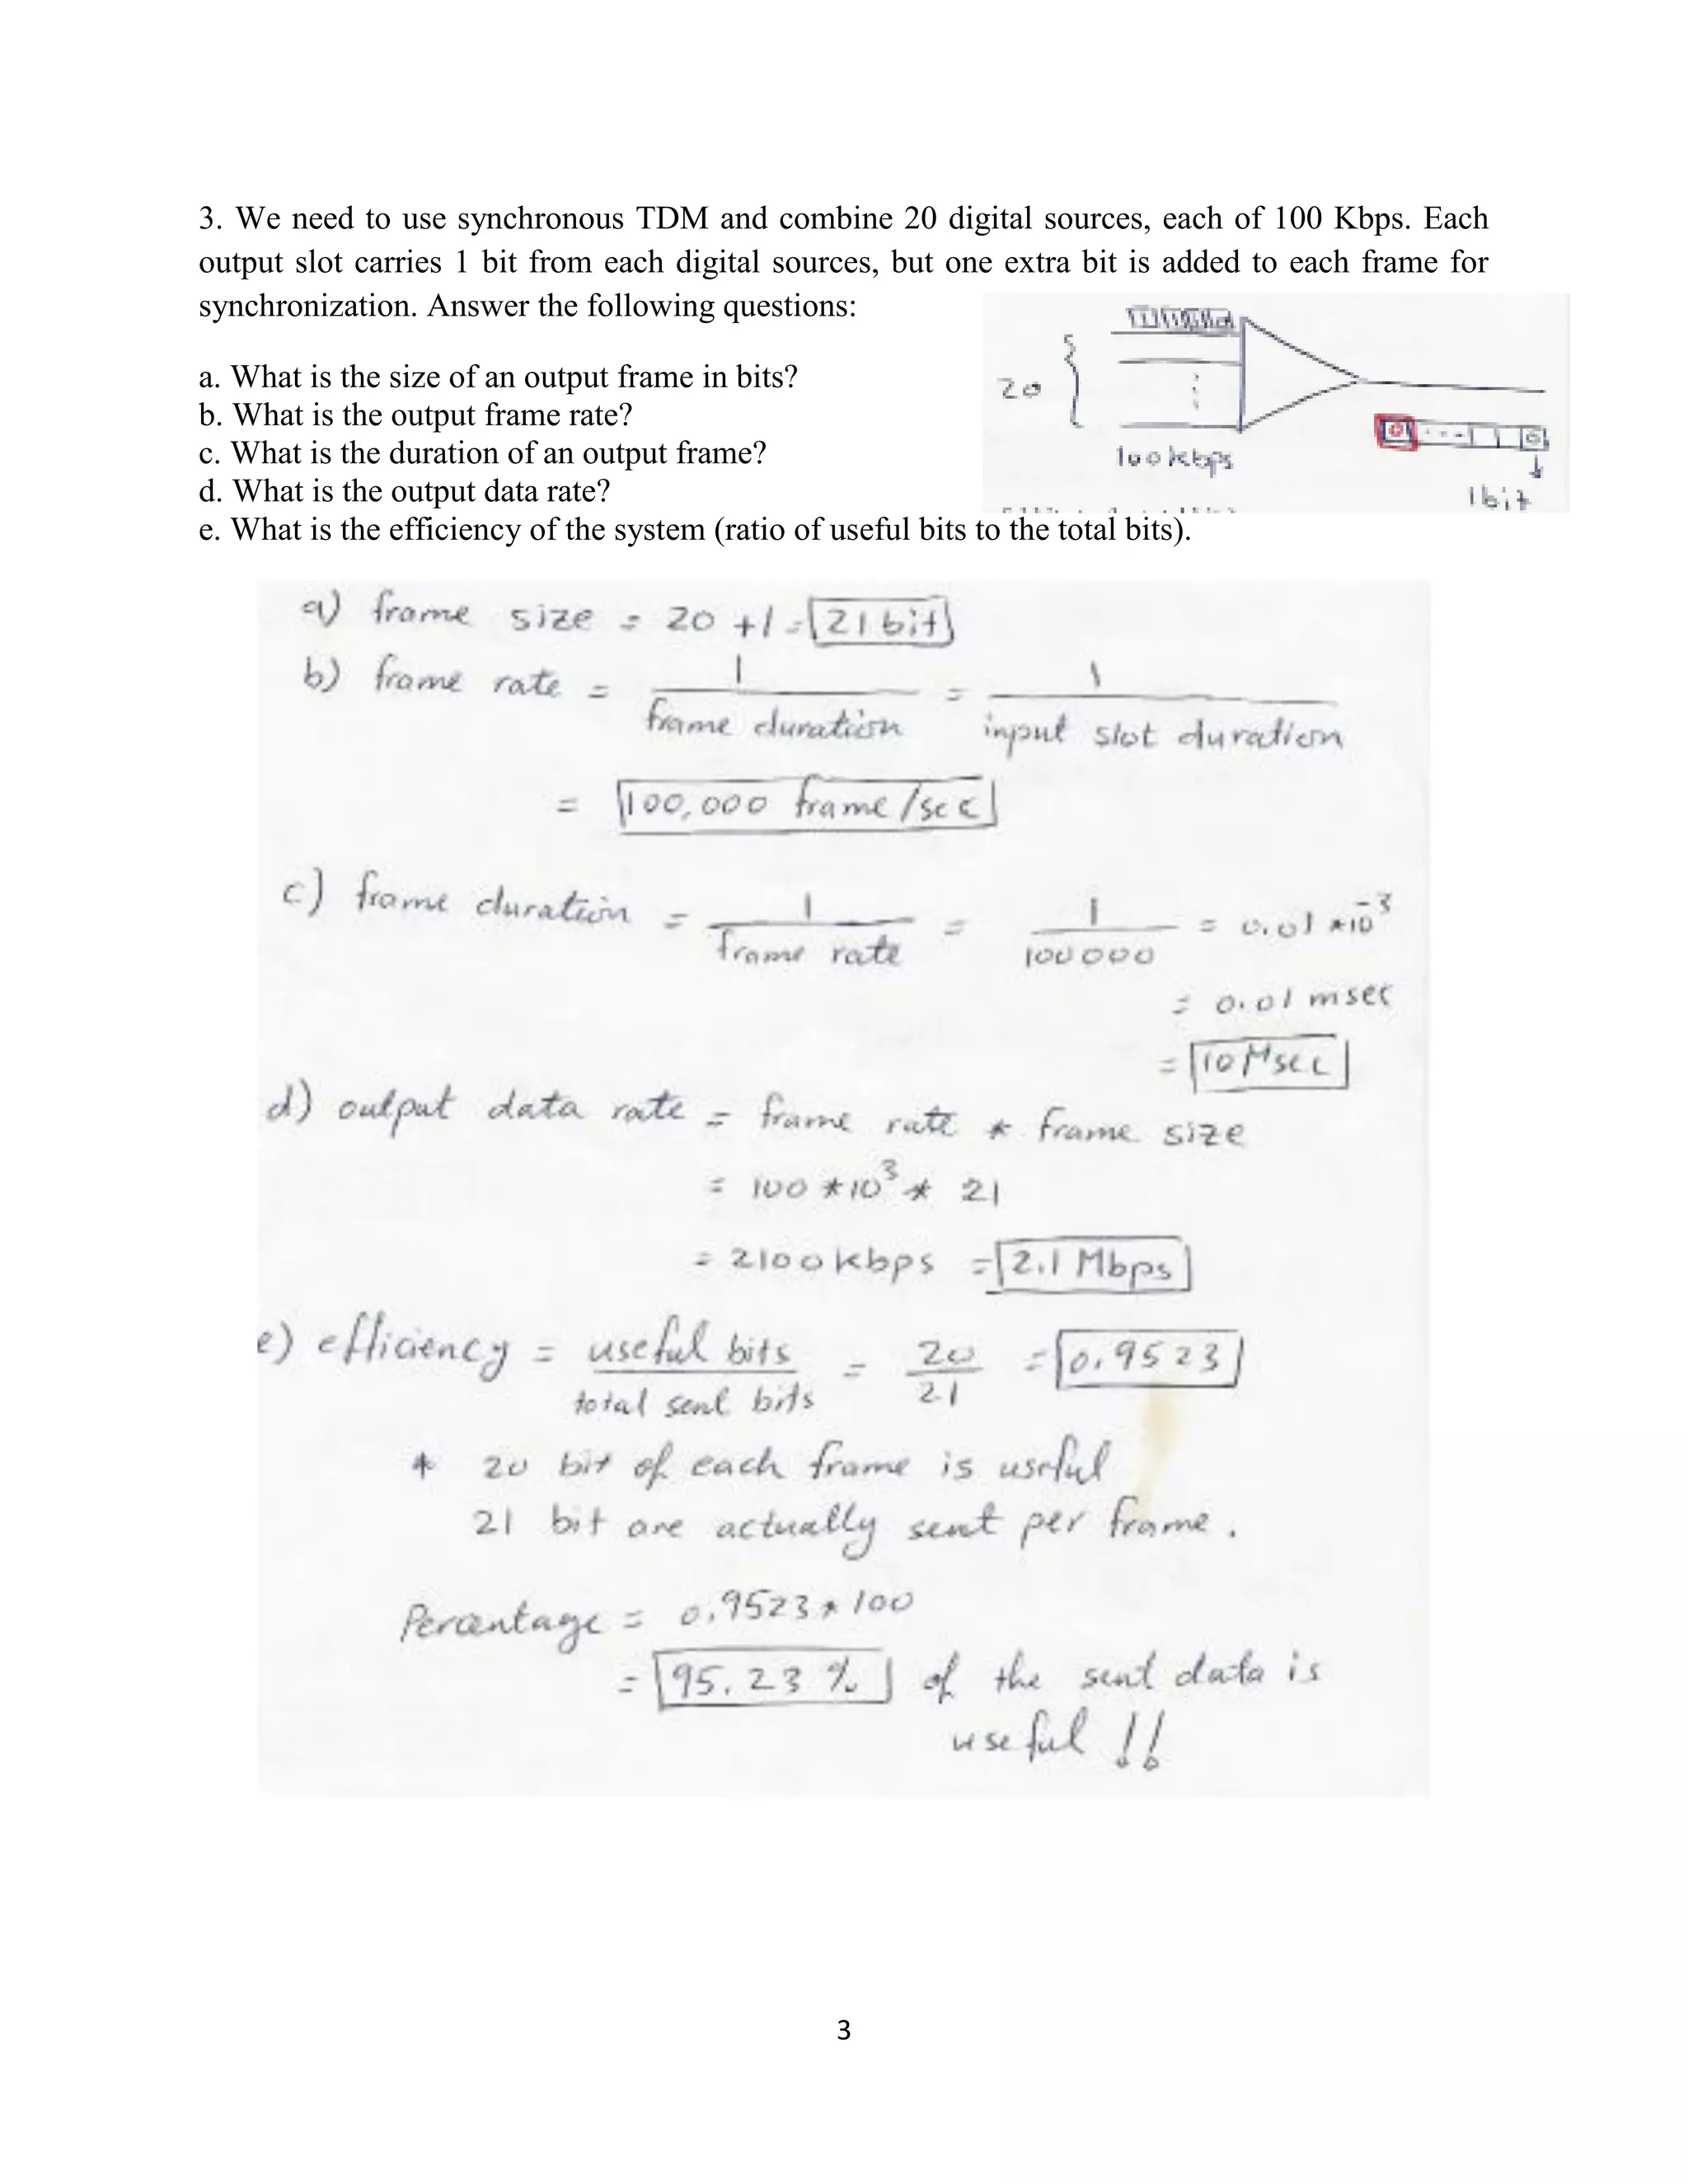 3. We need to use synchronous TDM and combine 20 digital sources, each of 100 Kbps. Each
output slot carries 1 bit from each digital sources, but one extra bit is added to each frame for
synchronization. Answer the following questions:
a. What is the size of an output frame in bits?
b. What is the output frame rate?
c. What is the duration of an output frame?
d. What is the output data rate?
e. What is the efficiency of the system (ratio of useful bits to the total bits).
20
100 kbps
1 bit
a) frame size = 20 + 1 = 21 bit
b) frame rate = 1 / frame duration = 1 / input slot duration
= 100,000 frame/sec
c) frame duration = 1 / frame rate = 1 / 100000 = 0.01 * 10^-3
= 0.01 msec
= 10 Msec
d) output data rate = frame rate * frame size
= 100 * 10^3 * 21
= 2100 kbps = 2.1 Mbps
e) efficiency = useful bits / total sent bits = 20 / 21 = 0.9523
* 20 bit of each frame is useful
21 bit are actually sent per frame.
Percentage = 0.9523 * 100
= 95.23 % of the sent data is
useful !!
3